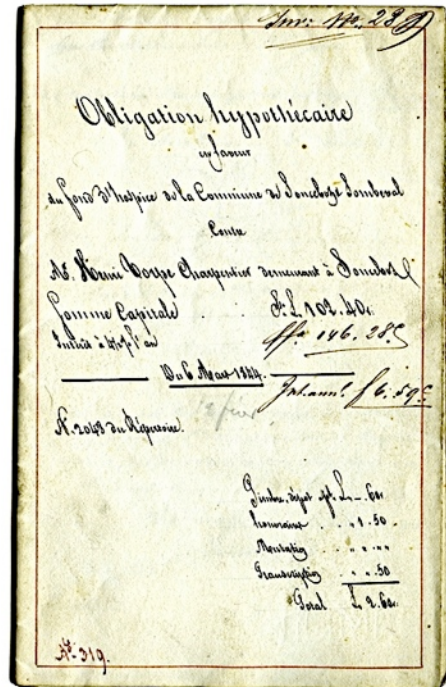 Inv: No. 23
Obligation hypothécaire
en faveur
du fond d'hospice de la Commune de Sonceboz Sombeval
Contre
Mr. Henri Voupe Charpentier demeurant à Sonceboz
Somme Capitale . . . Fr. L. 102.40c.
Intérêt à 4 p% l'an
ffr 146.28c
Du 6 Mars 1844.
Int. ann. f 6.59c
N. 2043 du Répertoire.
Timbre, dépot L. - . 60c
honoraires . . " 1.50 .
Mutation . . " " . ""
Transcription . . " . 50
Total L. 2.60c.
No. 319.